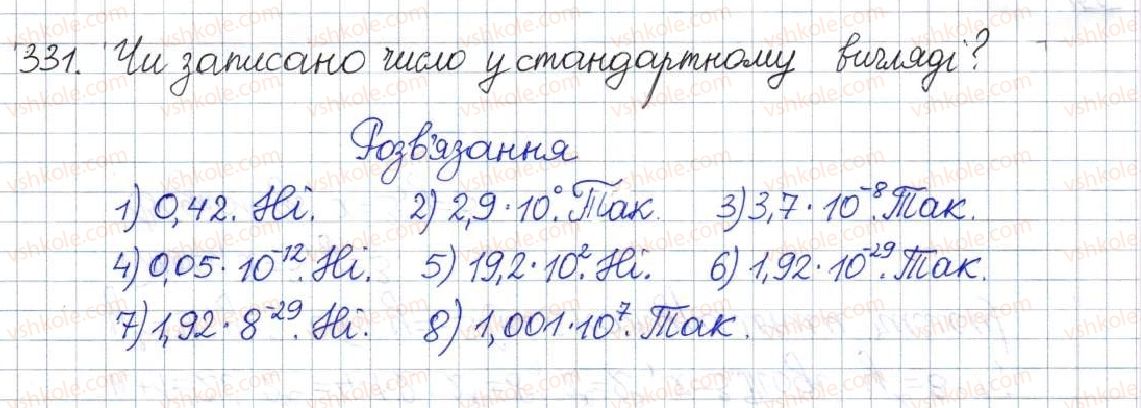 331. Чи записано число у стандартному вигляді?
Розв'язання
1) 0,42. Ні. 2) 2,9 · 10⁰. Так. 3) 3,7 · 10⁻⁸. Так.
4) 0,05 · 10⁻¹². Ні. 5) 19,2 · 10². Ні. 6) 1,92 · 10⁻²⁹. Так.
7) 1,92 · 8⁻²⁹. Ні. 8) 1,001 · 10⁷. Так.